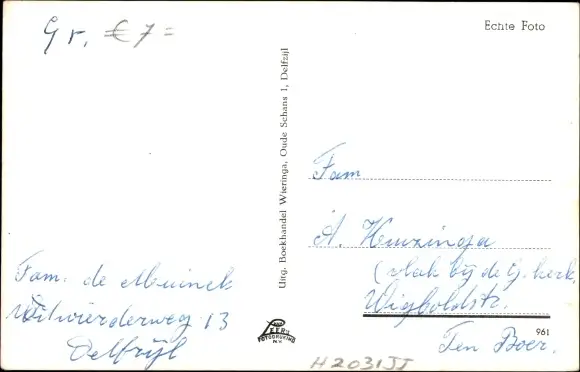 Gr. € 7=
Echte Foto
Uitg. Boekhandel Wieringa, Oude Schans 1, Delfzijl
Fam
A. Huizinga
(vlak bij de G. kerk,
Wigboldstr.
Ten Boer.
Fam. de Muinck
Uitwierderweg 13
Delfzijl
FOTODRUKKING
N.V.
961
H2031JJ